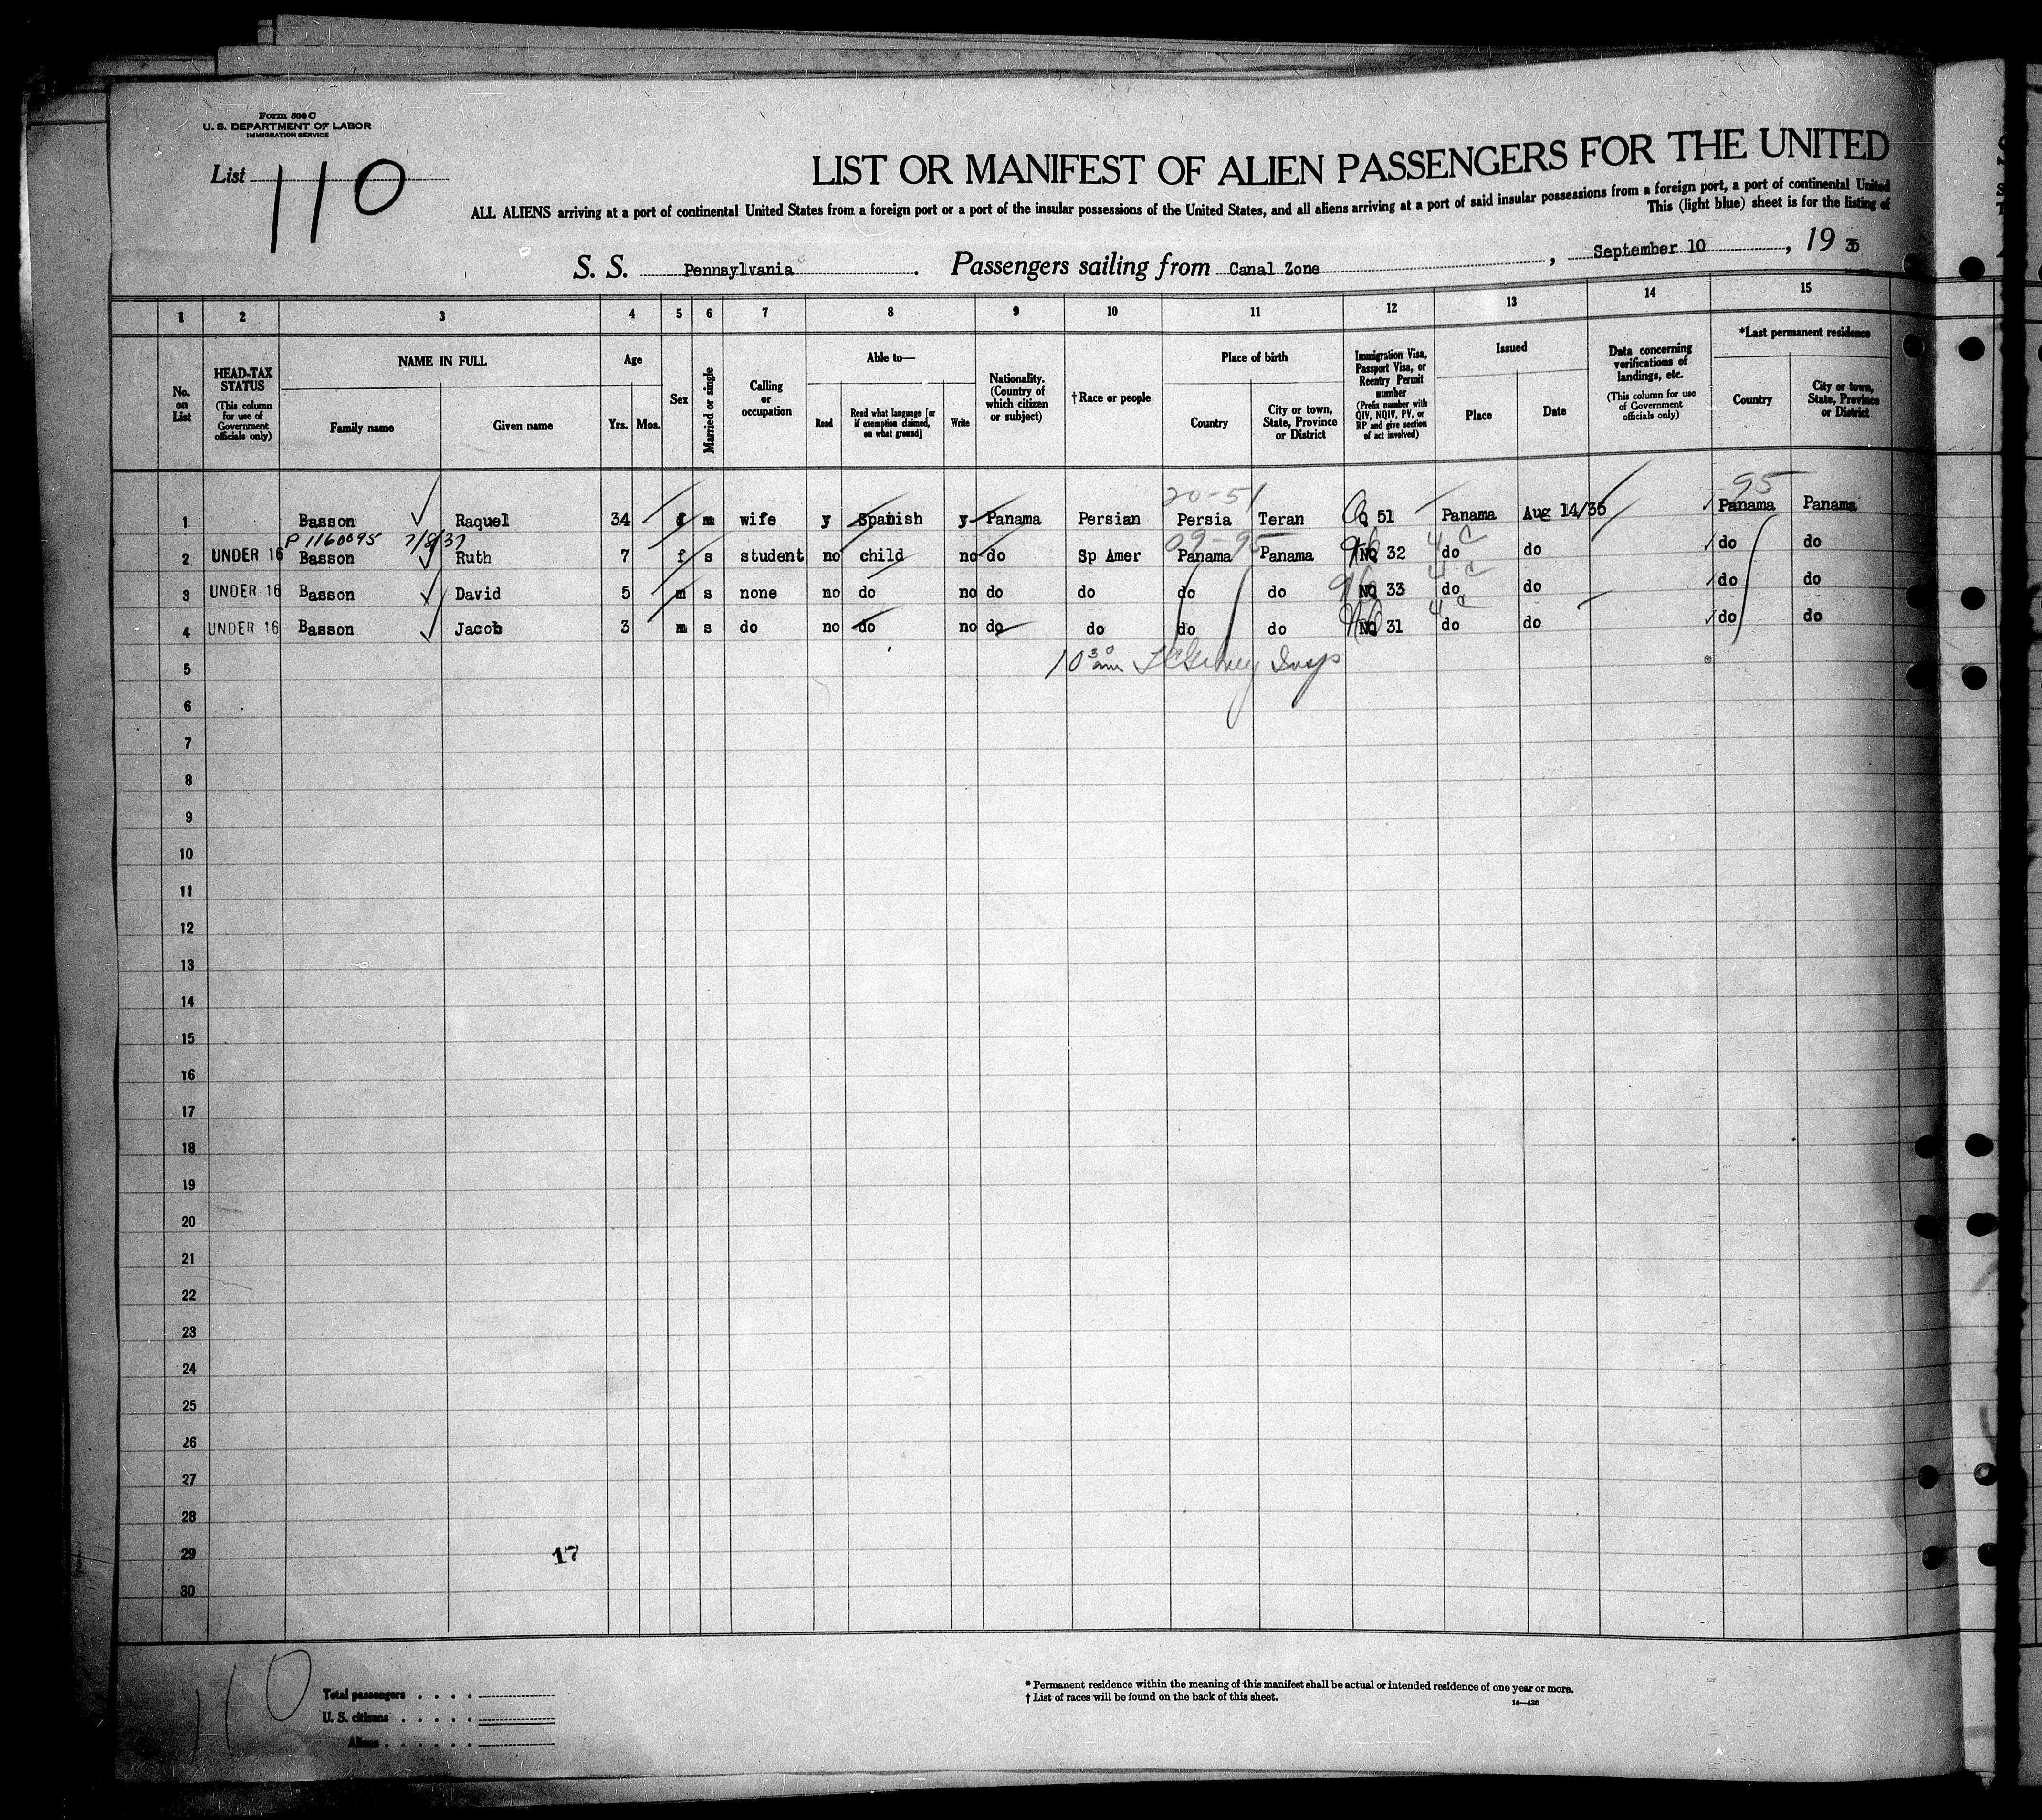 Form 500 C
U. S. DEPARTMENT OF LABOR
IMMIGRATION SERVICE
List 110
LIST OR MANIFEST OF ALIEN PASSENGERS FOR THE UNITED
ALL ALIENS arriving at a port of continental United States from a foreign port or a port of the insular possessions of the United States, and all aliens arriving at a port of said insular possessions from a foreign port, a port of continental United
This (light blue) sheet is for the listing of
S. S. Pennsylvania. Passengers sailing from Canal Zone, September 10, 1935
1 2 3 4 5 6 7 8 9 10 11 12 13 14 15
No. on List
HEAD-TAX STATUS
(This column for use of Government officials only)
NAME IN FULL
Family name
Given name
Age
Yrs. Mos.
Sex
Married or single
Calling or occupation
Able to—
Read
Read what language [or if exemption claimed, on what ground]
Write
Nationality. (Country of which citizen or subject)
†Race or people
Place of birth
Country
City or town, State, Province or District
Immigration Visa, Passport Visa, or Reentry Permit number
(Prefix number with QIV, NQIV, PV, or RP and give section of act involved)
Issued
Place
Date
Data concerning verifications of landings, etc.
(This column for use of Government officials only)
*Last permanent residence
Country
City or town, State, Province or District
20-51 95
1 Basson Raquel 34 f m wife y Spanish y Panama Persian Persia Teran Q 51 Panama Aug 14/35 Panama Panama
P 1160095 7/8/37 09-95 4 c
2 UNDER 16 Basson Ruth 7 f s student no child no do Sp Amer Panama Panama NQ 32 do do do do
4 c
3 UNDER 16 Basson David 5 m s none no do no do do do do NQ 33 do do do do
4 c
4 UNDER 16 Basson Jacob 3 m s do no do no do do do do NQ 31 do do do do
5 10 30 am Insp
6
7
8
9
10
11
12
13
14
15
16
17
18
19
20
21
22
23
24
25
26
27
28
29 17
30
110
Total passengers . . . .
U. S. citizens . . . . .
Aliens . . . . . .
* Permanent residence within the meaning of this manifest shall be actual or intended residence of one year or more.
† List of races will be found on the back of this sheet.
14—430